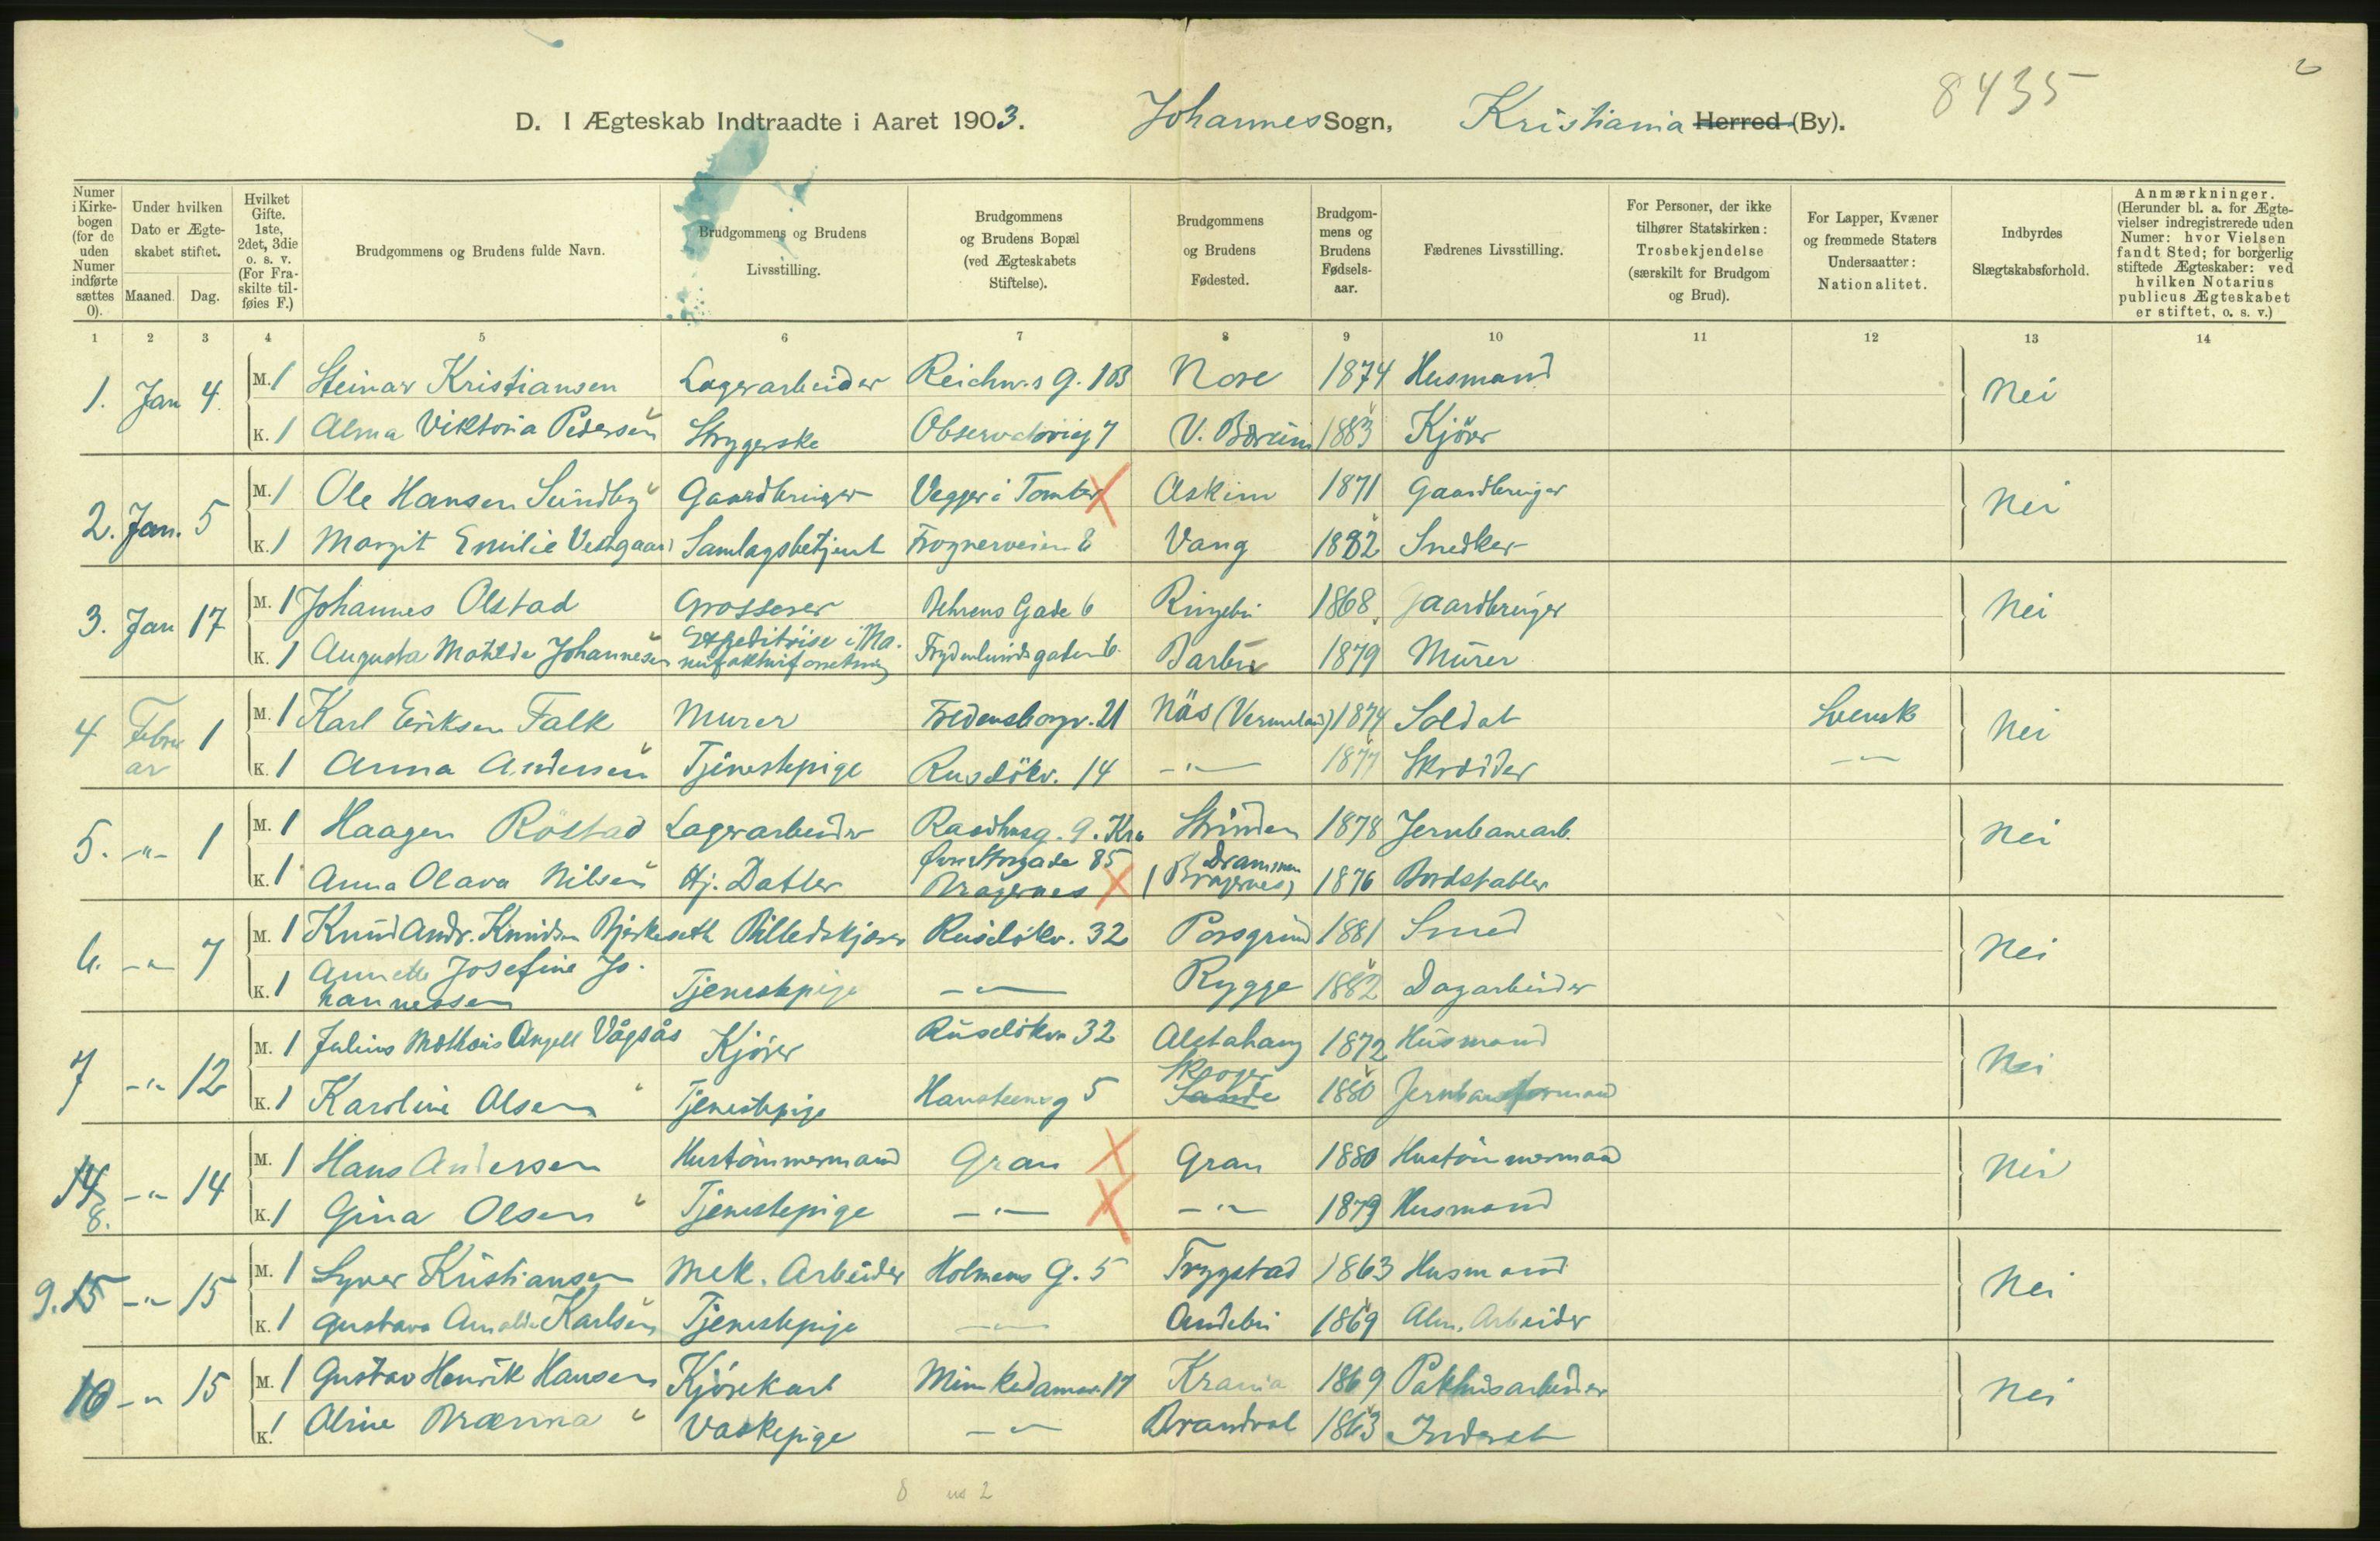 2
8435
D. I Ægteskab Indtraadte i Aaret 1903. Johannes Sogn, Kristiania Herred (By).
Numer i Kirke-bogen (for de uden Numer indførte sættes 0).
Under hvilken Dato er Ægte-skabet stiftet.
Maaned. Dag.
Hvilket Gifte. 1ste, 2det, 3die o. s. v. (For Fra-skilte til-føies F.)
Brudgommens og Brudens fulde Navn.
Brudgommens og Brudens Livsstilling.
Brudgommens og Brudens Bopæl (ved Ægteskabets Stiftelse).
Brudgommens og Brudens Fødested.
Brudgom-mens og Brudens Fødsels-aar.
Fædrenes Livsstilling.
For Personer, der ikke tilhører Statskirken: Trosbekjendelse (særskilt for Brudgom og Brud).
For Lapper, Kvæner og fremmede Staters Undersaatter: Nationalitet.
Indbyrdes Slægtskabsforhold.
Anmærkninger. (Herunder bl. a. for Ægte-vielser indregistrerede uden Numer: hvor Vielsen fandt Sted; for borgerlig stiftede Ægteskaber: ved hvilken Notarius publicus Ægteskabet er stiftet, o. s. v.)
1 2 3 4 5 6 7 8 9 10 11 12 13 14
1. Jan 4. M. 1 Steinar Kristiansen Lagerarbeider Reichw.s g. 103 Nore 1874 Husmand Nei
K. 1 Alma Viktoria Pedersen Strygerske Observatorieg 7 V. Bærum 1883 Kjører
2. Jan. 5 M. 1 Ole Hansen Sundby Gaardbruger Vegger i Tomter Askim 1871 Gaardbruger Nei
K. 1 Margit Emilie Vestgaard Samlagsbetjent Frognerveien 2 Vang 1882 Snedker
3. Jan 17 M. 1 Johannes Olstad Grosserer Behrens Gade 6 Ringebu 1868. Gaardbruger Nei
K. 1 Augusta Matilde Johannesen Expeditrise i Ma-nufakturforretning Frydenlundsgaten 6 Barbu 1879 Murer
4 Februar 1 M. 1 Karl Eriksen Falk Murer Fredensborgv. 21 Näs (Vermeland) 1874 Soldat Svensk Nei
K. 1 Anna Andersen Tjenestepige Ruseløkv. 14 -"- 1877 Skrædder -"-
5. -"- 1 M. 1 Haagen Röstad Lagerarbeider Raadhusg. 9. Kra Strinden 1878 Jernbanearb. Nei
K. 1 Anna Olava Nilsen Hj. Datter Øvre Storgade 85 Bragernes Drammen (Bragernes) 1876 Bordstabler
6. -"- 7 M. 1 Knud Andr. Knudsen Bjerkeseth Billedskjærer Ruseløkv. 32 Porsgrund 1881 Smed Nei
K. 1 Annette Josefine Jo-hannessen Tjenestepige -"- Rygge 1882 Dagarbeider
7 -"- 12 M. 1 Julius Mathias Angell Vågsås Kjører Ruseløkv 32 Alstahaug 1872 Husmand Nei
K. 1 Karoline Olsen Tjenestepige Hansteensg 5 Skoger Sande 1880 Jernbaneformand
14 8. -"- 14 M. 1 Hans Andersen Hustømmermand Gran Gran 1880 Hustømmermand Nei
K. 1 Gina Olsen Tjenestepige -"- -"- 1879 Husmand
9. 15 -"- 15 M. 1 Syver Kristiansen Mek. Arbeider Holmens G. 5 Trygstad 1863 Husmand Nei
K. 1 Gustava Amalda Karlsen Tjenestepige -"- Andebu 1869 Alm. Arbeider
10 -"- 15 M. 1 Gustav Henrik Hansen Kjørekarl Munkedamsv. 17 Krania 1869 Pakhusarbeider Nei
K. 1 Aline Brænna Vaskepige -"- Brandval 1863 Inderst